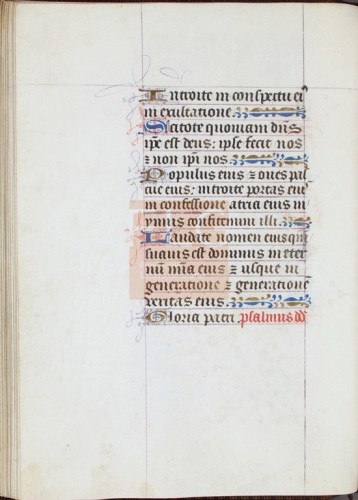 Introite in conspectu eiꝰ
in exultatione.
Scitote quoniam dn̄s
ip̄e est deus: ipse fecit nos
⁊ non ip̄i nos.
Populus eius ⁊ oues pas
cue eius: introite portas eiꝰ
in confessione atria eius in
ymnis confitemini illi.
Laudate nomen eius qm̄
suauis est dominus in eter
num mīa eius ⁊ usque in
generatione ⁊ generatione
veritas eius.
Gloria patri. psalmus dd